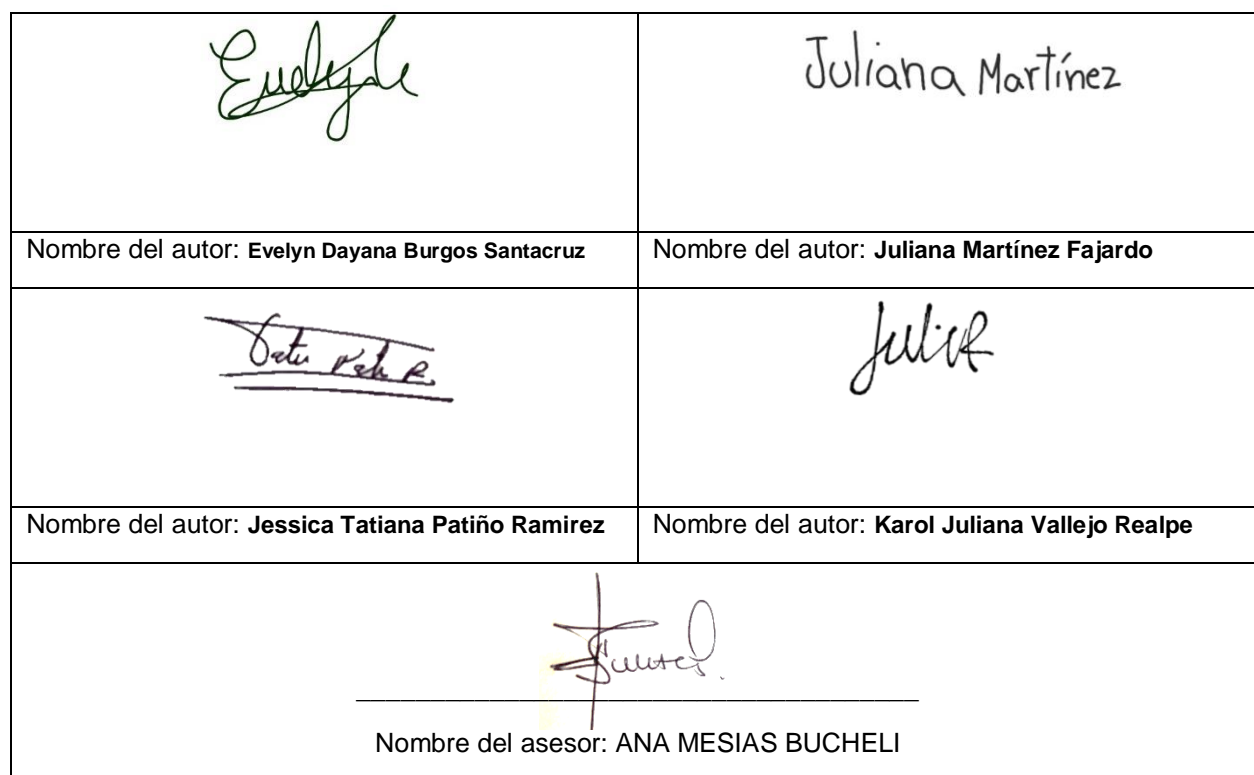 Juliana Martínez
Nombre del autor: Evelyn Dayana Burgos Santacruz
Nombre del autor: Juliana Martínez Fajardo
Nombre del autor: Jessica Tatiana Patiño Ramirez
Nombre del autor: Karol Juliana Vallejo Realpe
Nombre del asesor: ANA MESIAS BUCHELI